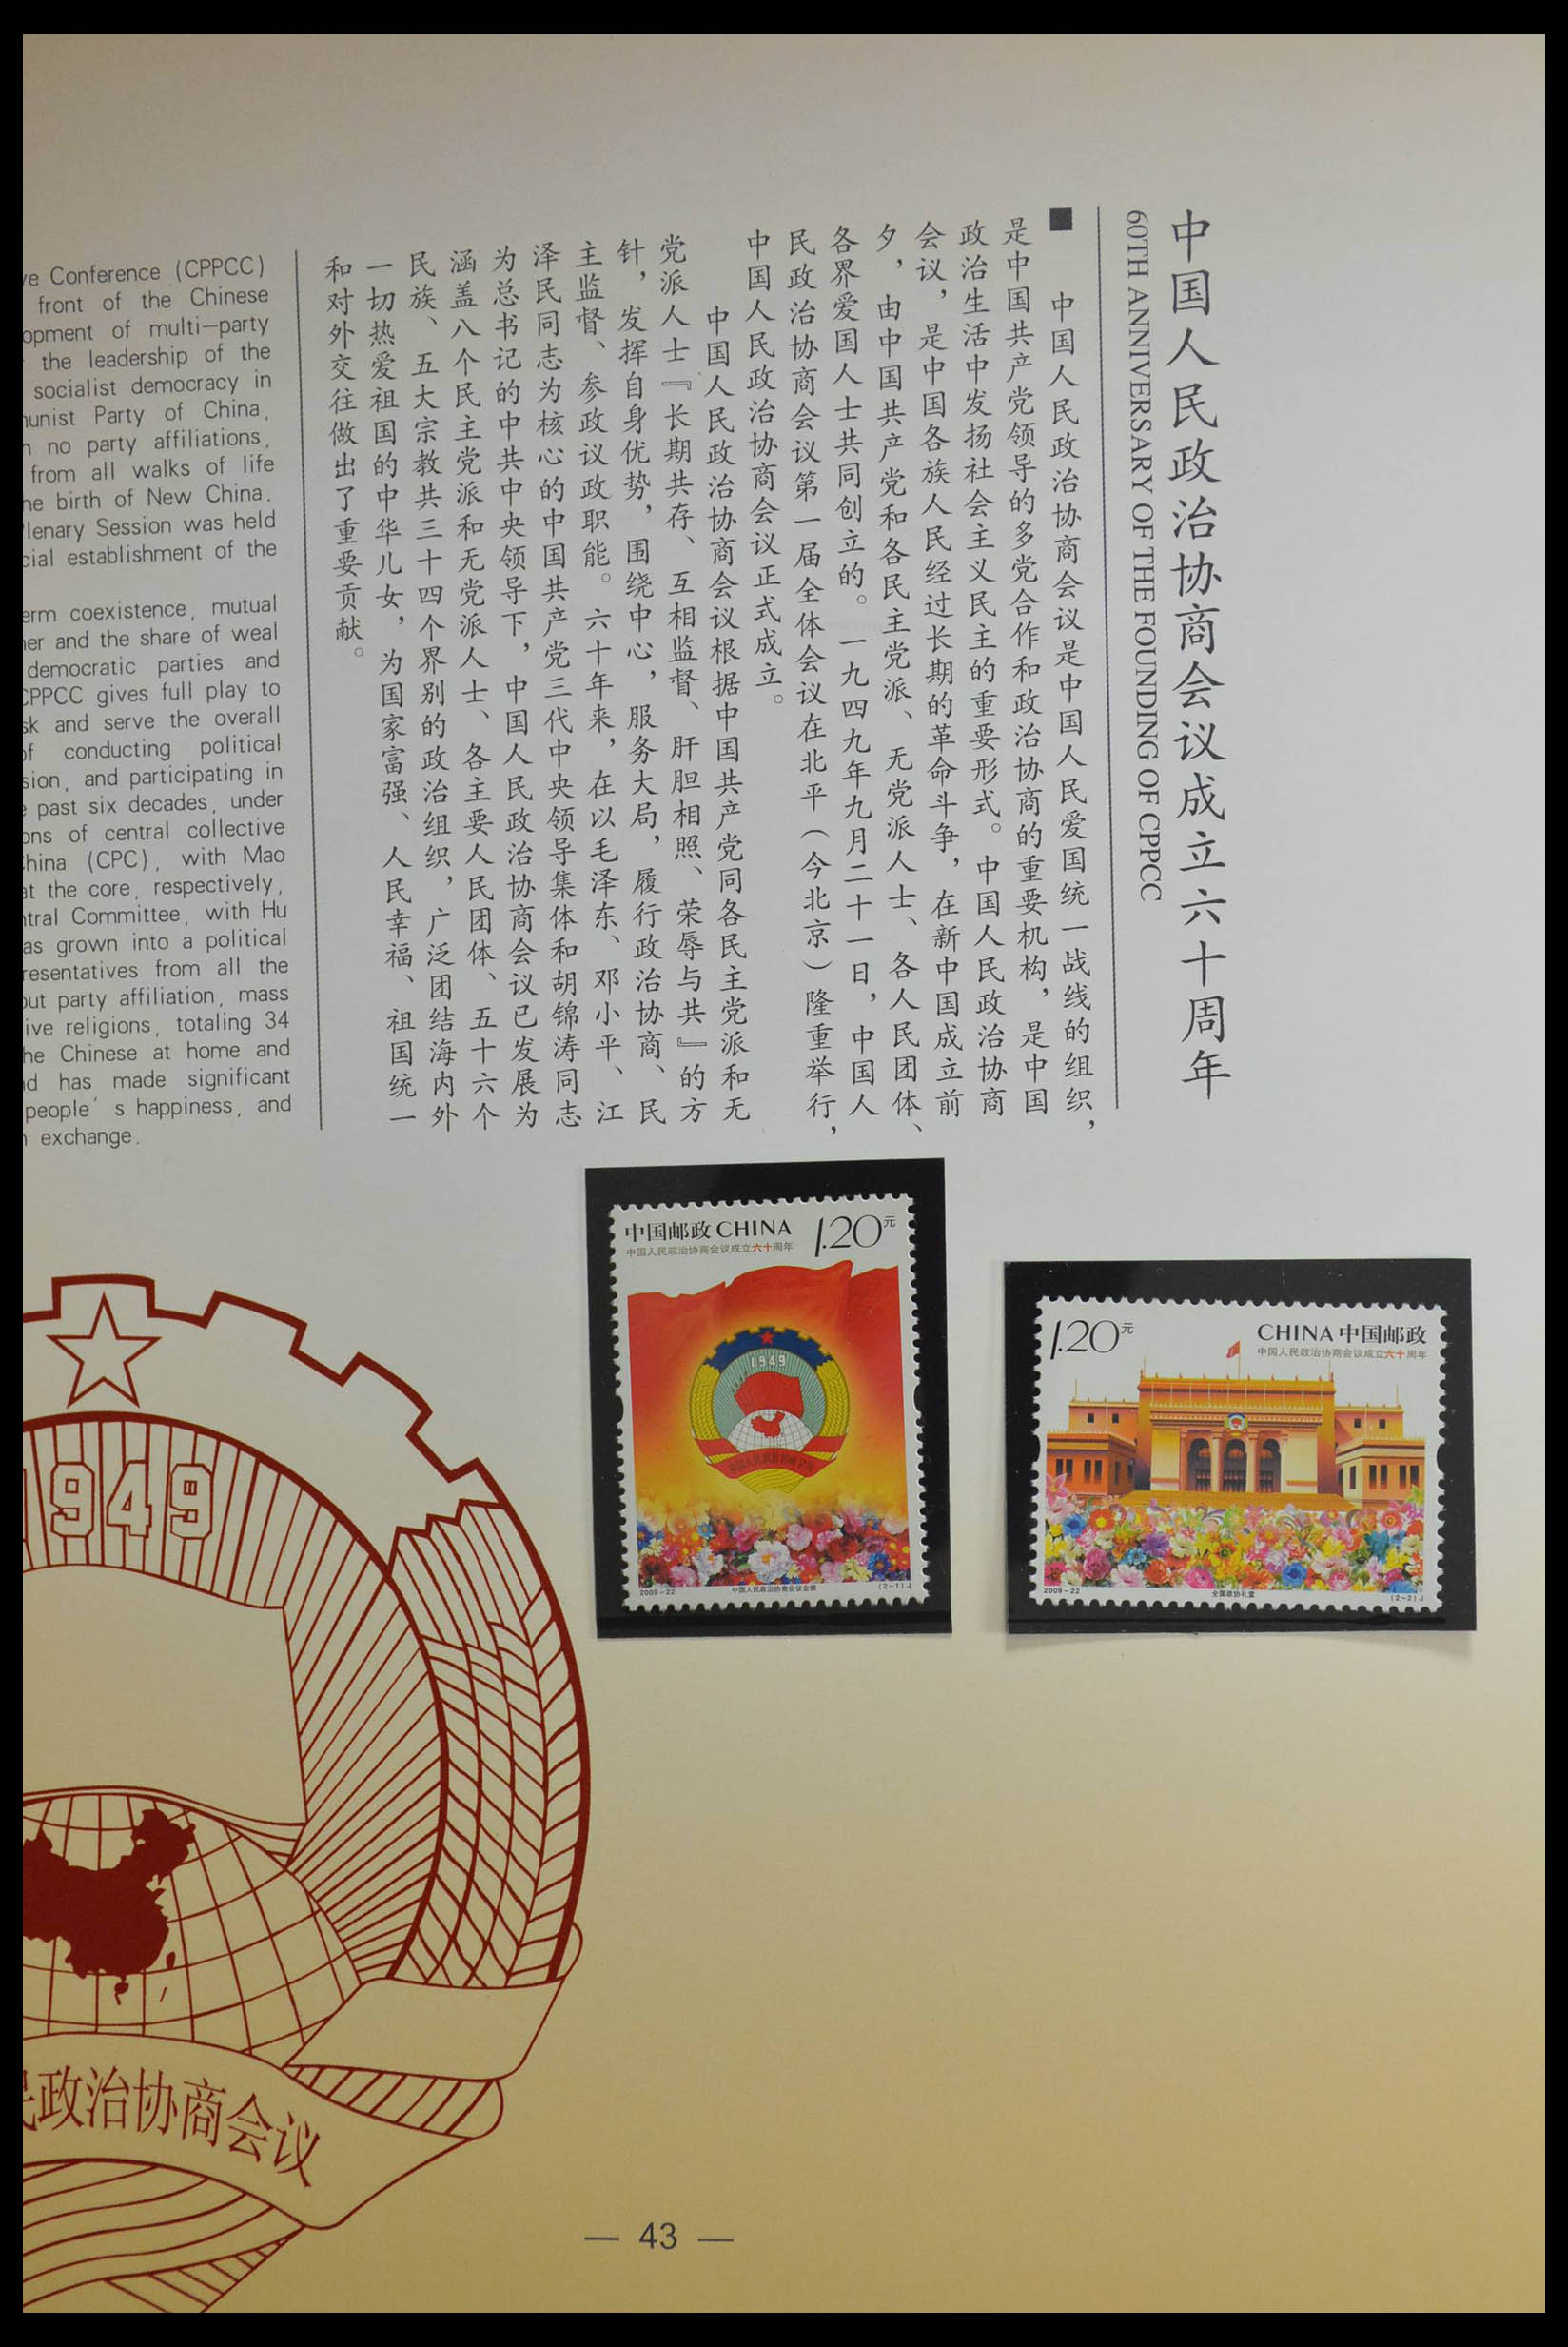 中国人民政治协商会议成立六十周年
60TH ANNIVERSARY OF THE FOUNDING OF CPPCC
■
中国人民政治协商会议是中国人民爱国统一战线的组织，
是中国共产党领导的多党合作和政治协商的重要机构，是中国
政治生活中发扬社会主义民主的重要形式。中国人民政治协商
会议，是中国各族人民经过长期的革命斗争，在新中国成立前
夕，由中国共产党和各民主党派、无党派人士、各人民团体、
各界爱国人士共同创立的。一九四九年九月二十一日，中国人
民政治协商会议第一届全体会议在北平（今北京）隆重举行，
中国人民政治协商会议正式成立。
中国人民政治协商会议根据中国共产党同各民主党派和无
党派人士『长期共存、互相监督、肝胆相照、荣辱与共』的方
针，发挥自身优势，围绕中心，服务大局，履行政治协商、民
主监督、参政议政职能。六十年来，在以毛泽东、邓小平、江
泽民同志为核心的中国共产党三代中央领导集体和胡锦涛同志
为总书记的中共中央领导下，中国人民政治协商会议已发展为
涵盖八个民主党派和无党派人士、各主要人民团体、五十六个
民族、五大宗教共三十四个界别的政治组织，广泛团结海内外
一切热爱祖国的中华儿女，为国家富强、人民幸福、祖国统一
和对外交往做出了重要贡献。
ve Conference (CPPCC)
front of the Chinese
opment of multi-party
the leadership of the
socialist democracy in
munist Party of China,
no party affiliations,
from all walks of life
he birth of New China.
lenary Session was held
cial establishment of the
erm coexistence, mutual
her and the share of weal
democratic parties and
CPPCC gives full play to
sk and serve the overall
of conducting political
sion, and participating in
past six decades, under
ons of central collective
China (CPC), with Mao
at the core, respectively,
ntral Committee, with Hu
as grown into a political
resentatives from all the
out party affiliation, mass
ive religions, totaling 34
he Chinese at home and
nd has made significant
people's happiness, and
exchange.
中国邮政 CHINA 1.20元
中国人民政治协商会议成立六十周年
1949
2009-22 中国人民政治协商会议会徽 (2-1)J
1.20元 CHINA 中国邮政
中国人民政治协商会议成立六十周年
2009-22 全国政协礼堂 (2-2)J
1949
民政治协商会议
— 43 —